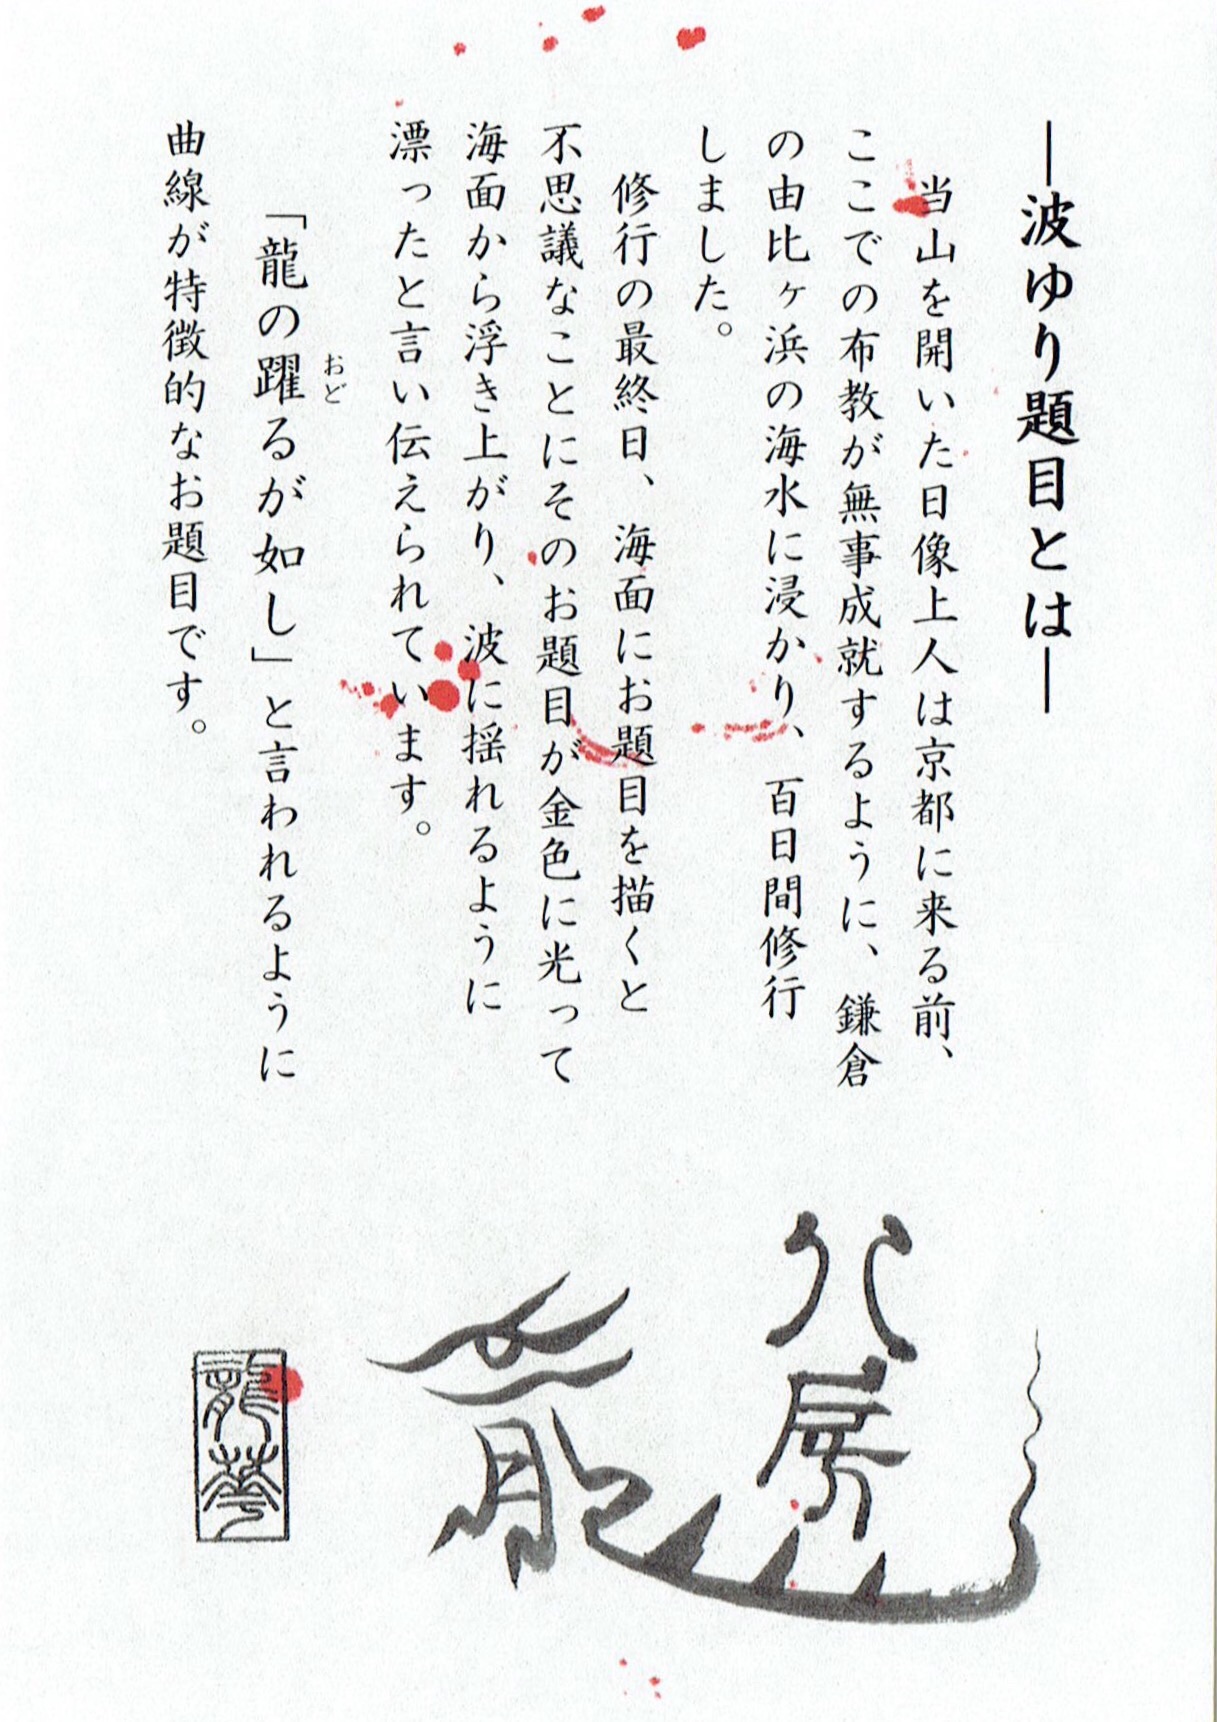 ―波ゆり題目とは―
当山を開いた日像上人は京都に来る前、
ここでの布教が無事成就するように、鎌倉
の由比ヶ浜の海水に浸かり、百日間修行
しました。
修行の最終日、海面にお題目を描くと
不思議なことにそのお題目が金色に光って
海面から浮き上がり、波に揺れるように
漂ったと言い伝えられています。
「龍の躍るが如し」と言われるように
おど
曲線が特徴的なお題目です。
八房
龍
龍華